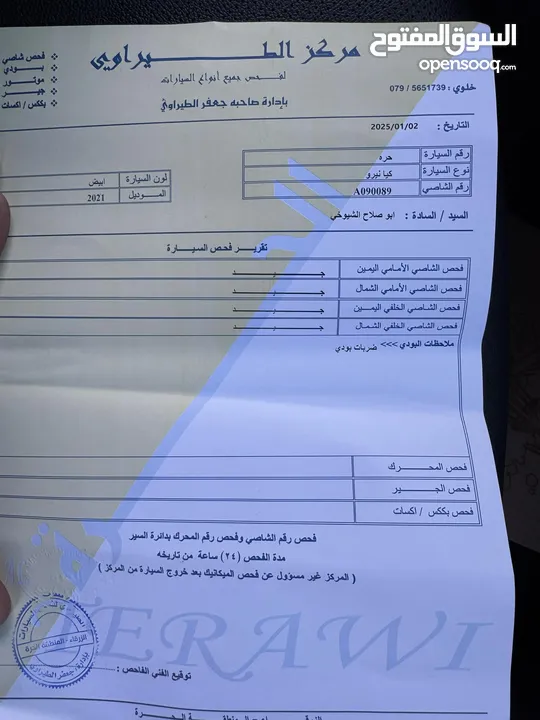 السوق المفتوح
opensooq.com
مركز الطيراوي
لفحص جميع أنواع السيارات
بإدارة صاحبه جعفر الطيراوي
خلوي : 5651739 / 079
❖ فحص شاصي
❖ بودي
❖ موتور
❖ جير
❖ بكس / اكسات
التاريخ : 2025/01/02
رقم السيارة حره
نوع السيارة كيا نيرو
رقم الشاصي A090089
لون السيارة ابيض
الموديل 2021
السيد / السادة : ابو صلاح الشيوخي
تقرير فحص السيارة
فحص الشاصي الأمامي اليمين جيد
فحص الشاصي الأمامي الشمال جيد
فحص الشاصي الخلفي اليمين جيد
فحص الشاصي الخلفي الشمال جيد
ملاحظات البودي >>> ضربات بودي
فحص المحرك
فحص الجير
فحص بكس / اكسات
فحص رقم الشاصي وفحص رقم المحرك بدائرة السير
مدة الفحص (٢٤) ساعة من تاريخه
( المركز غير مسؤول عن فحص الميكانيك بعد خروج السيارة من المركز )
TERAWI
الزرقاء - المنطقة الحرة
توقيع الفني الفاحص :